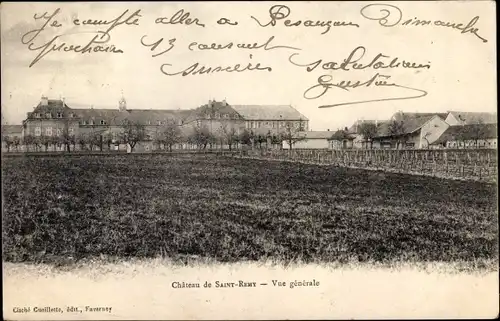 Je compte aller à Besançon Dimanche
prochain 13 courant Salutations
sincères Gustave
Château de SAINT-REMY — Vue générale
Cliché Cusillette, édit., Faverney